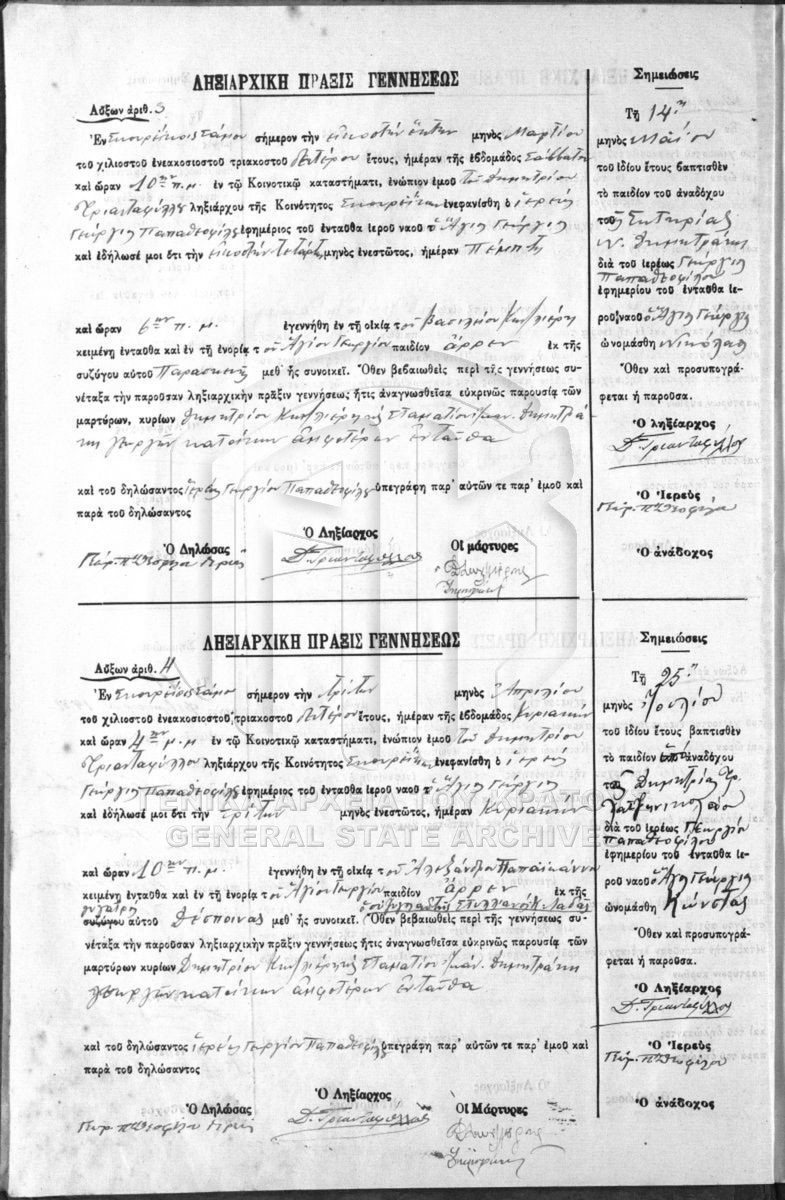 ΛΗΞΙΑΡΧΙΚΗ ΠΡΑΞΙΣ ΓΕΝΝΗΣΕΩΣ
Αὔξων ἀριθ. 3
Ἐν Σκουρέικοις Σάμου σήμερον τὴν εἰκοστὴν ἕκτην μηνὸς Μαρτίου
τοῦ χιλιοστοῦ ἐνεακοσιοστοῦ τριακοστοῦ δευτέρου ἔτους, ἡμέραν τῆς ἑβδομάδος Σάββατον
καὶ ὥραν 10ην π.μ. ἐν τῷ Κοινοτικῷ καταστήματι, ἐνώπιον ἐμοῦ τοῦ Δημητρίου
Τριανταφύλλου ληξιάρχου τῆς Κοινότητος Σκουρεΐκων ἐνεφανίσθη ὁ ἱερεὺς
Γεώργιος Παπαθεοφίλου ἐφημέριος τοῦ ἐνταῦθα ἱεροῦ ναοῦ ὁ Ἅγιος Γεώργιος
καὶ ἐδήλωσέ μοι ὅτι τὴν εἰκοστὴν τετάρτην μηνὸς ἐνεστῶτος, ἡμέραν Πέμπτη
καὶ ὥραν 6ην π.μ. ἐγεννήθη ἐν τῇ οἰκίᾳ τοῦ Βασιλείου
κειμένῃ ἐνταῦθα καὶ ἐν τῇ ἐνορίᾳ τοῦ Ἁγίου Γεωργίου παιδίον ἄρρεν ἐκ τῆς
συζύγου αὐτοῦ Παρασκευῆς μεθ᾽ ἧς συνοικεῖ. Ὅθεν βεβαιωθεὶς περὶ τῆς γεννήσεως συ-
νέταξα τὴν παροῦσαν ληξιαρχικὴν πρᾶξιν γεννήσεως ἥτις ἀναγνωσθεῖσα εὐκρινῶς παρουσίᾳ τῶν
μαρτύρων, κυρίων Δημητρίου Σταματίου Ἰωάν. Δημητρά-
κη γεωργῶν κατοίκων ἀμφοτέρων ἐνταῦθα
καὶ τοῦ δηλώσαντος ἱερέως Γεωργίου Παπαθεοφίλου ὑπεγράφη παρ᾽ αὐτῶν τε παρ᾽ ἐμοῦ καὶ
παρὰ τοῦ δηλώσαντος
Ὁ Δηλώσας Ὁ Ληξίαρχος Οἱ μάρτυρες
Δ. Τριανταφύλλου
Σημειώσεις
Τῇ 14ῃ
μηνὸς Μαΐου
τοῦ ἰδίου ἔτους βαπτισθὲν
τὸ παιδίον τοῦ ἀναδόχου
Σωτηρίας
Ν. Δημητράκη
διὰ τοῦ ἱερέως Γεωργίου
Παπαθεοφίλου
ἐφημερίου τοῦ ἐνταῦθα ἱε-
ροῦ ναοῦ ὁ Ἅγιος Γεώργιος
ὠνομάσθη Νικόλαος
Ὅθεν καὶ προσυπογρά-
φεται ἡ παροῦσα.
Ὁ ληξίαρχος
Δ. Τριανταφύλλου
Ὁ Ἱερεὺς
Ὁ ἀνάδοχος
ΛΗΞΙΑΡΧΙΚΗ ΠΡΑΞΙΣ ΓΕΝΝΗΣΕΩΣ
Αὔξων ἀριθ. 4
Ἐν Σκουρέικοις Σάμου σήμερον τὴν τρίτην μηνὸς Ἀπριλίου
τοῦ χιλιοστοῦ ἐνεακοσιοστοῦ τριακοστοῦ δευτέρου ἔτους, ἡμέραν τῆς ἑβδομάδος Κυριακὴν
καὶ ὥραν 4ην μ.μ. ἐν τῷ Κοινοτικῷ καταστήματι, ἐνώπιον ἐμοῦ τοῦ Δημητρίου
Τριανταφύλλου ληξιάρχου τῆς Κοινότητος Σκουρεΐκων ἐνεφανίσθη ὁ ἱερεὺς
Γεώργιος Παπαθεοφίλου ἐφημέριος τοῦ ἐνταῦθα ἱεροῦ ναοῦ ὁ Ἅγιος Γεώργιος
καὶ ἐδήλωσέ μοι ὅτι τὴν τρίτην μηνὸς ἐνεστῶτος, ἡμέραν Κυριακὴν
ΓΕΝΙΚΑ ΑΡΧΕΙΑ ΤΟΥ ΚΡΑΤΟΥΣ
GENERAL STATE ARCHIVES
καὶ ὥραν 10ην π.μ. ἐγεννήθη ἐν τῇ οἰκίᾳ τοῦ Ἀλεξάνδρου Παπαϊωάννου
κειμένῃ ἐνταῦθα καὶ ἐν τῇ ἐνορίᾳ τοῦ Ἁγίου Γεωργίου παιδίον ἄρρεν ἐκ τῆς
συζύγου αὐτοῦ Δέσποινας μεθ᾽ ἧς συνοικεῖ. Ὅθεν βεβαιωθεὶς περὶ τῆς γεννήσεως συ-
νέταξα τὴν παροῦσαν ληξιαρχικὴν πρᾶξιν γεννήσεως ἥτις ἀναγνωσθεῖσα εὐκρινῶς παρουσίᾳ τῶν
μαρτύρων κυρίων Δημητρίου Σταματίου Ἰωάν. Δημητράκη
γεωργῶν κατοίκων ἀμφοτέρων ἐνταῦθα
καὶ τοῦ δηλώσαντος ἱερέως Γεωργίου Παπαθεοφίλου ὑπεγράφη παρ᾽ αὐτῶν τε παρ᾽ ἐμοῦ καὶ
παρὰ τοῦ δηλώσαντος
Ὁ Δηλώσας Ὁ Ληξίαρχος Οἱ Μάρτυρες
Δ. Τριανταφύλλου
Σημειώσεις
Τῇ 25ῃ
μηνὸς Ἰουλίου
τοῦ ἰδίου ἔτους βαπτισθὲν
τὸ παιδίον ἀναδόχου
Δημητρίας
διὰ τοῦ ἱερέως Γεωργίου
Παπαθεοφίλου
ἐφημερίου τοῦ ἐνταῦθα ἱε-
ροῦ ναοῦ ὁ Ἅγιος Γεώργιος
ὠνομάσθη Κώνστας
Ὅθεν καὶ προσυπογρά-
φεται ἡ παροῦσα.
Ὁ Ληξίαρχος
Δ. Τριανταφύλλου
Ὁ Ἱερεὺς
Ὁ ἀνάδοχος